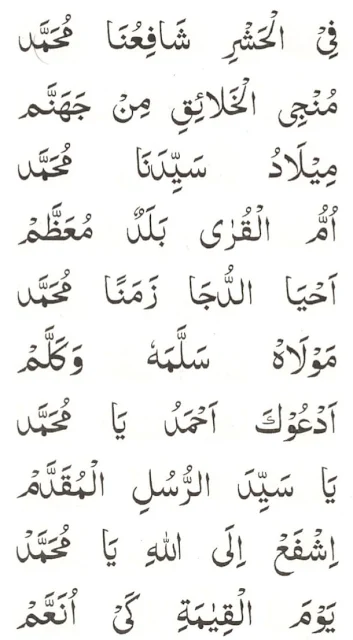 فِيْ الْحَشْرِ شَافِعُنَا مُحَمَّد
مُنْجِى الْخَلَائِقِ مِنْ جَهَنَّم
مِيْلَادُ سَيِّدَنَا مُحَمَّد
اُمُّ الْقُرٰى بَلَدٌ مُعَظَّمْ
اَحْيَا الدُّجَا زَمَنًا مُحَمَّد
مَوْلَاهْ سَلَّمَهٗ وَكَلَّمْ
اَدْعُوْكَ اَحْمَدُ يَا مُحَمَّد
يَا سَيِّدَ الرُّسُلِ الْمُقَدَّمْ
اِشْفَعْ اِلَى اللهِ يَا مُحَمَّدْ
يَوْمَ الْقِيٰمَةِ كَىْ اُنَعَّمْ